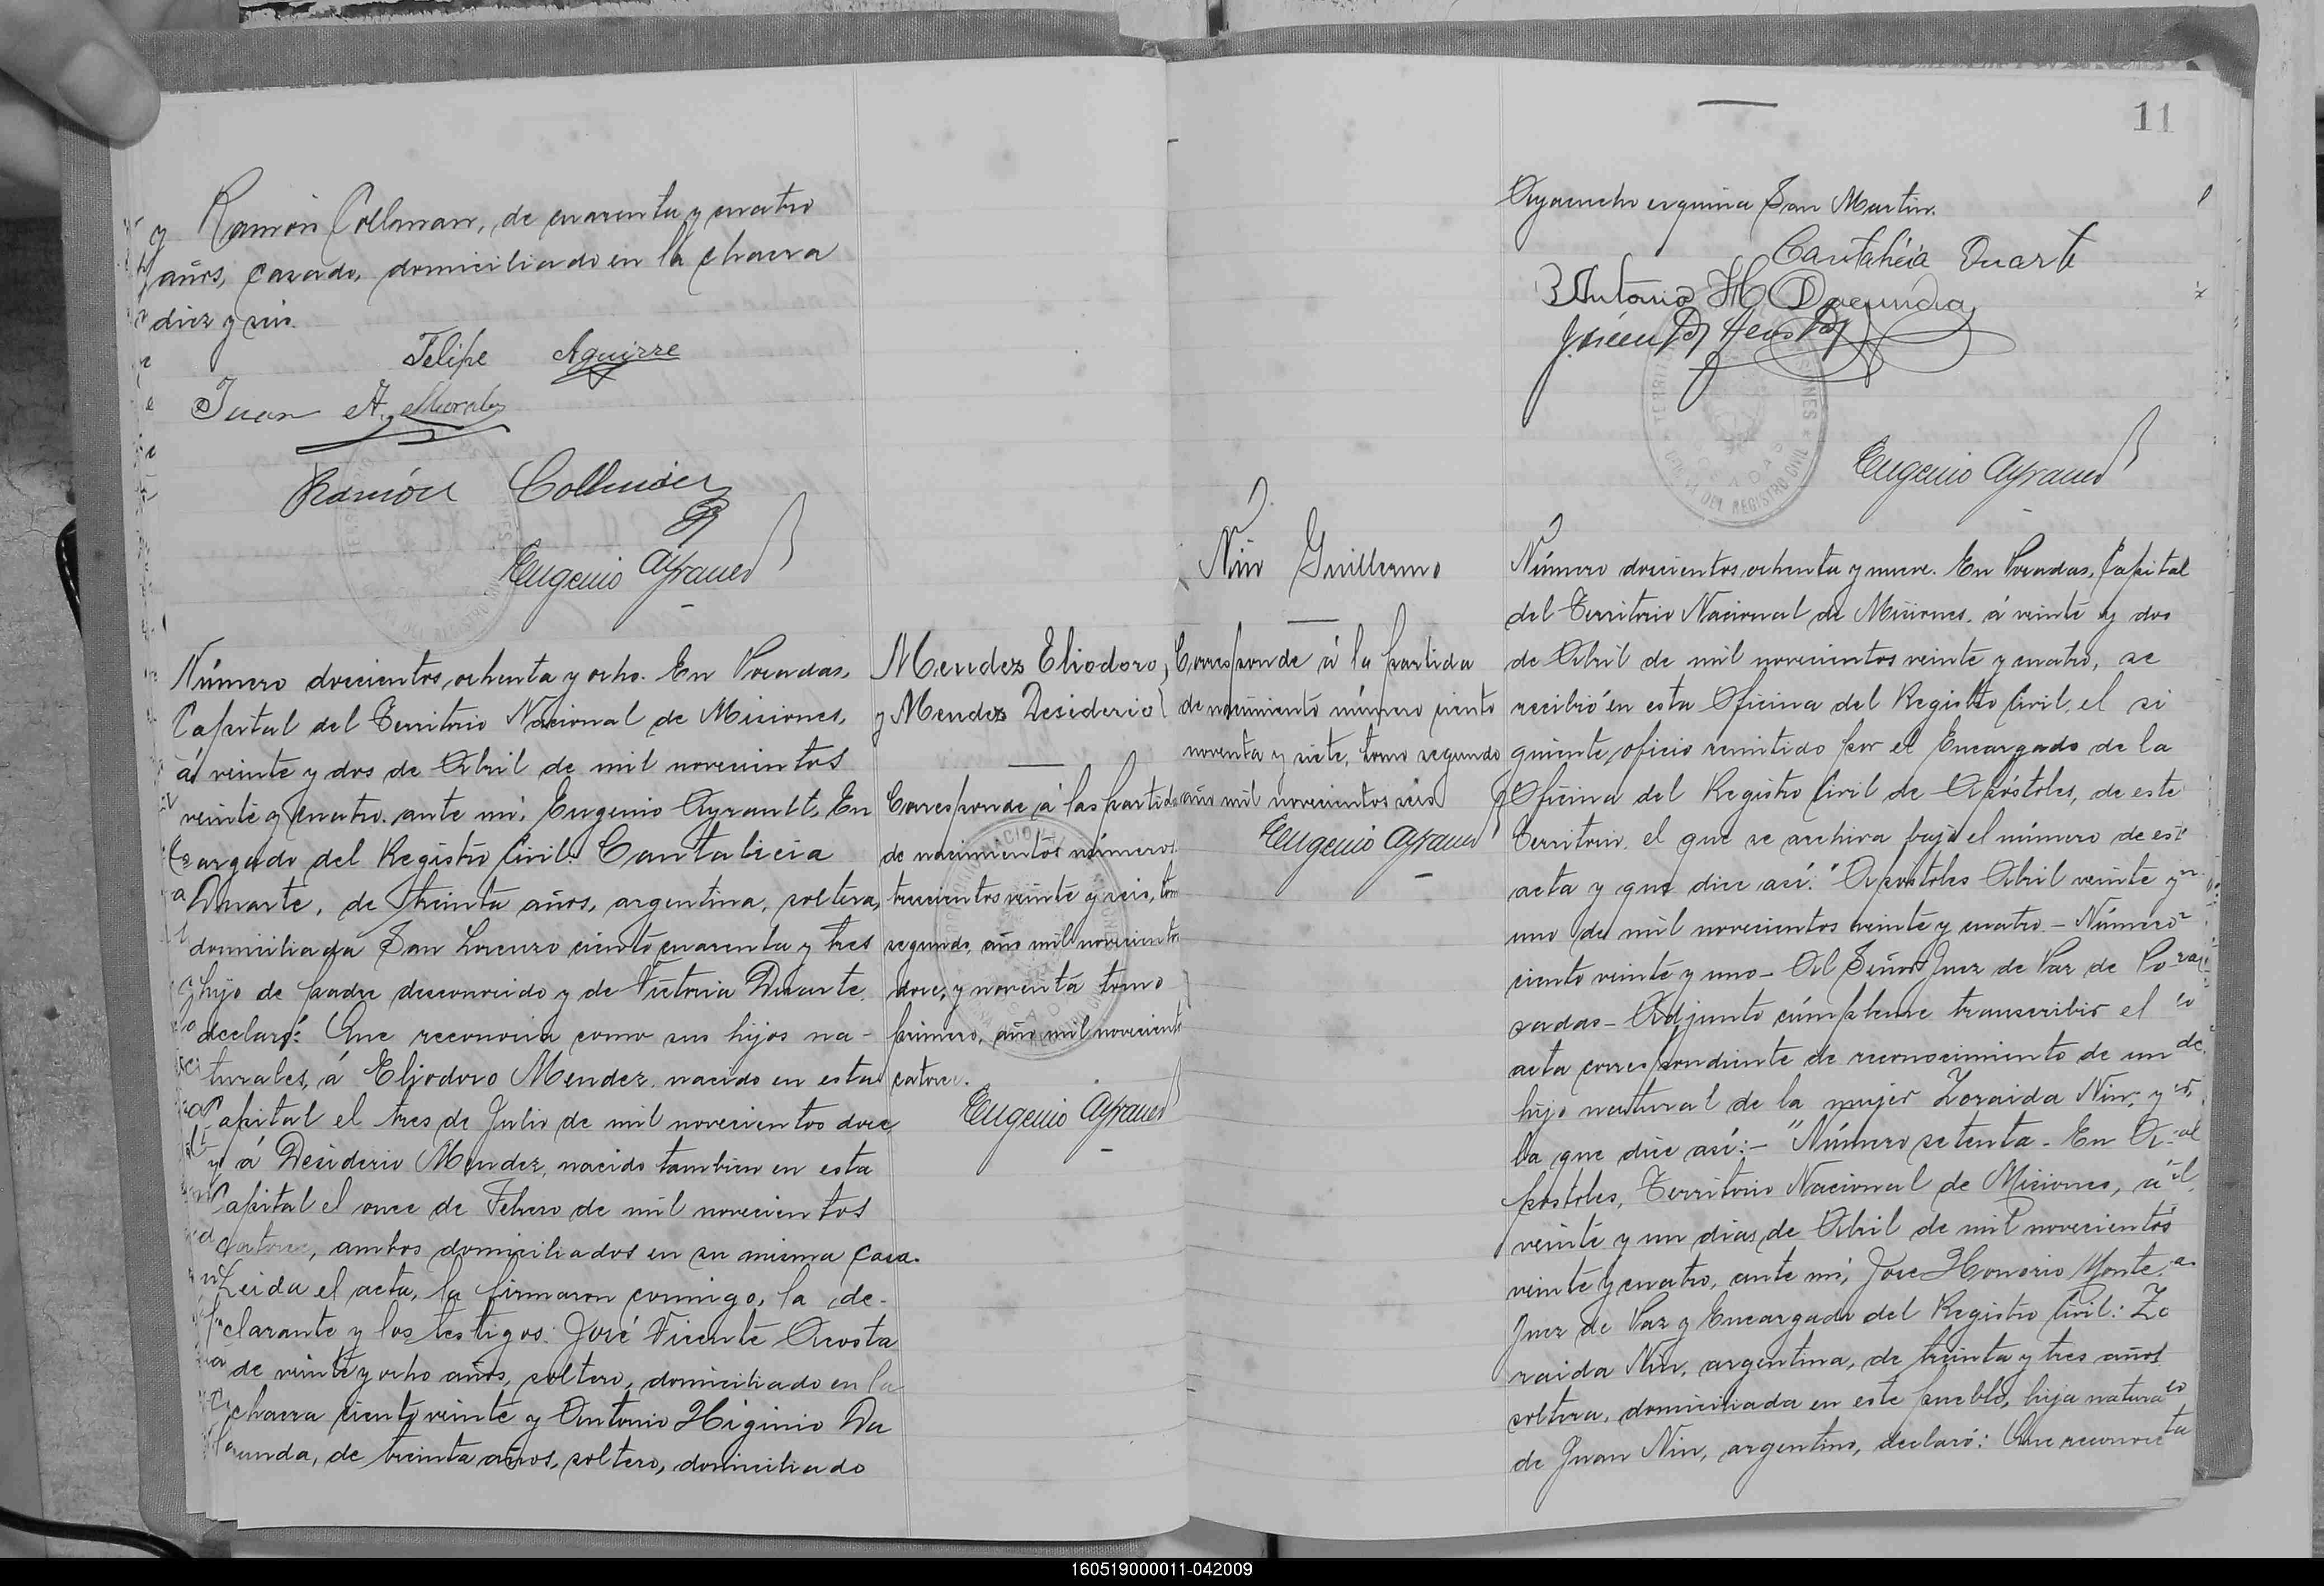 Ramón Collman, de cuarenta y cuatro
años, casado, domiciliado en la chacra
diez y seis.
Felipe Aguirre
Juan A. Morales
Ramón
Eugenio Ayrault
Número doscientos ochenta y ocho. En Posadas,
Capital del Territorio Nacional de Misiones,
á veinte y dos de Abril de mil novecientos
veinte y cuatro, ante mí, Eugenio Ayrault, En
cargado del Registro Civil: Cantalicia
Duarte, de treinta años, argentina, soltera,
domiciliada San Lorenzo ciento cuarenta y tres
hijo de padre desconocido y de Victoria Duarte,
declaró: Que reconocia como sus hijos na-
turales, á Eliodoro Mendez, nacido en esta
Capital el tres de Julio de mil novecientos doce
y á Desiderio Mendez, nacido tambien en esta
Capital el once de Febrero de mil novecientos
catorce, ambos domiciliados en su misma casa.
Leida el acta, la firmaron conmigo, la de-
clarante y los testigos: José Vicente Acosta
de veinte y ocho años, soltero, domiciliado en la
chacra ciento veinte y Antonio Higinio Da
cunda, de treinta años, soltero, domiciliado
Mendez Eliodoro,
y Mendez Desiderio
Corresponde á las partidas
de nacimientos números
trescientos veinte y seis, tomo
segundo, año mil novecientos
doce, y noventa tomo
primero, año mil novecientos
catorce.
Eugenio Ayrault
11
Ayacucho esquina San Martin.
Cantalicia Duarte
Antonio H
Acosta
REGISTRO CIVIL
Eugenio Ayrault
Nin Guillermo
Corresponde á la partida
de nacimiento número ciento
noventa y siete, tomo segundo
año mil novecientos seis
Eugenio Ayrault
Número doscientos ochenta y nueve. En Posadas, Capital
del Territorio Nacional de Misiones, á veinte y dos
de Abril de mil novecientos veinte y cuatro, se
recibió en esta Oficina del Registro Civil, el si
guiente oficio remitido por el Encargado de la
Oficina del Registro Civil de Apóstoles, de este
Territorio, el que se archiva bajo el número de est
acta y que dice así: "Apóstoles Abril veinte y
uno de mil novecientos veinte y cuatro - Número
ciento veinte y uno - Al Señor Juez de Paz de Po
sadas - Adjunto cúmpleme transcribir el
acta correspondiente de reconocimiento de un
hijo natural de la mujer Zoraida Nin, y
la que dice así: - "Número setenta - En A
póstoles, Territorio Nacional de Misiones, á
veinte y un dias de Abril de mil novecientos
veinte y cuatro, ante mí, Jose Honorio Monte,
Juez de Paz y Encargado del Registro Civil: Zo
raida Nin, argentina, de treinta y tres años
soltera, domiciliada en este pueblo, hija natura
de Juan Nin, argentino, declaró: Que reconoce
160519000011-042009